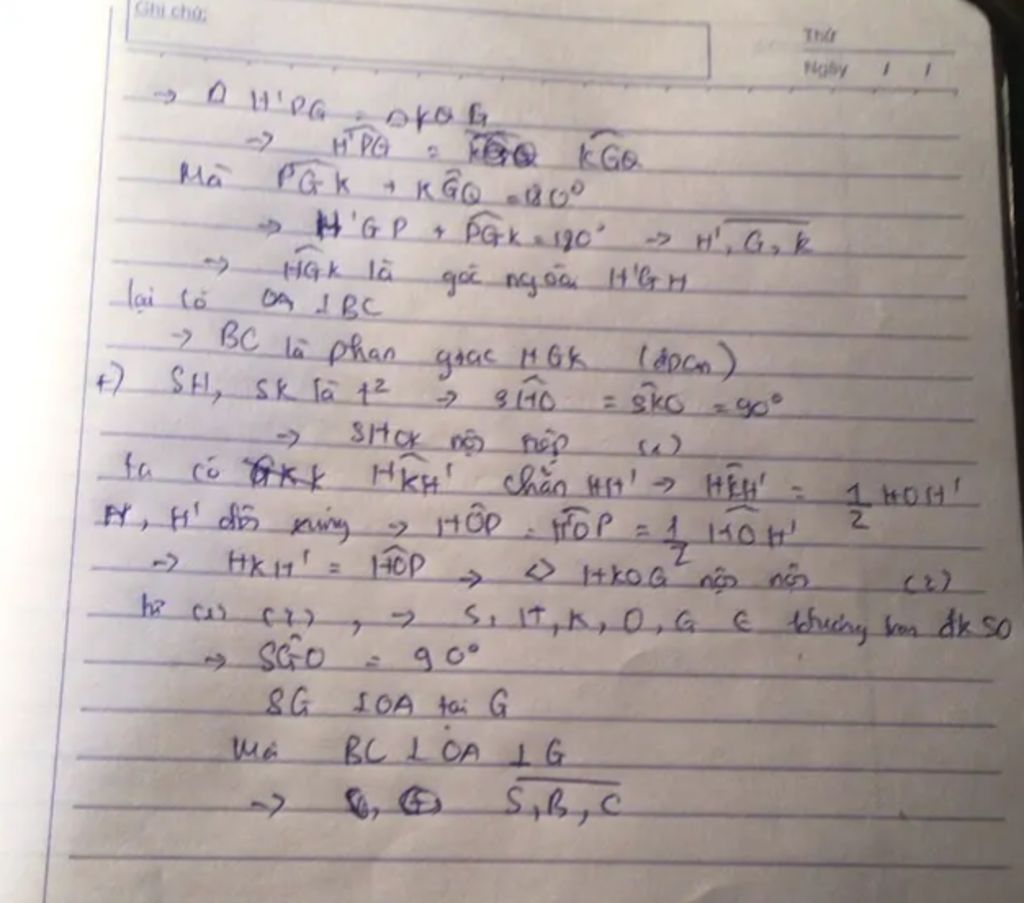 Ghi chú:
Thứ
Ngày / /
→ Δ H'PG = Δ KQG
→ H'PG = KGQ
Mà PGK + KGQ = 180°
→ H'GP + PGK = 180° → H', G, K
→ HGK là góc ngoài H'GH
lại có OA ⊥ BC
→ BC là phan giac HGK (đpcm)
+) SH, SK là t² → SHO = SKO = 90°
→ SHOK nội tiếp (1)
ta có HKH' chắn HH' → HKH' = 1/2 HOH'
H, H' đối xứng → HOP = H'OP = 1/2 HOH'
→ HKH' = HOP → ◇ HKOG nội (2)
từ (1) (2), → S, H, K, O, G ∈ đk SO
→ SGO = 90°
SG ⊥ OA tai G
Mà BC ⊥ OA ⊥ G
→ S, B, C